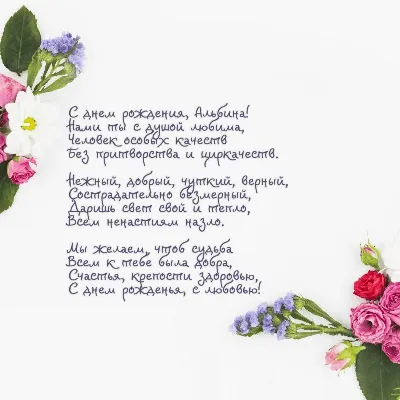 С днем рождения, Альбина!
Нами ты с душой любима,
Человек особых качеств
Без притворства и циркачеств.
Нежный, добрый, чуткий, верный,
Сострадательно безмерный,
Даришь свет свой и тепло,
Всем ненастиям назло.
Мы желаем, чтоб судьба
Всем к тебе была добра,
Счастья, крепости здоровью,
С днем рожденья, с любовью!